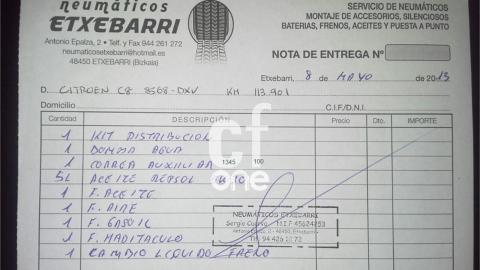 neumáticos
ETXEBARRI
Antonio Epalza, 2 • Telf. y Fax 944 261 272
neumaticosetxebarri@hotmail.es
48450 ETXEBARRI (Bizkaia)
SERVICIO DE NEUMÁTICOS
MONTAJE DE ACCESORIOS, SILENCIOSOS
BATERIAS, FRENOS, ACEITES Y PUESTA A PUNTO
NOTA DE ENTREGA Nº
Etxebarri, 8 de MAYO de 2013
D. CITROEN C8 8568-DXV KM 113.901
Domicilio C.I.F./D.N.I.
Cantidad DESCRIPCIÓN Precio Dto. IMPORTE
1 KIT DISTRIBUCION
1 BOMBA AGUA
1 CORREA AUXILIAR 1345 100
5L ACEITE REPSOL
1 F. ACEITE
1 F. AIRE
1 F. GASOIL
1 F. HABITACULO
1 CAMBIO LIQUIDO FRENO
cf
one
NEUMÁTICOS ETXEBARRI
Sergio Cuervo N.I.F.
Antonio Epalza, 2 - 48450, Etxebarri
Tfn. 94 426 12 72